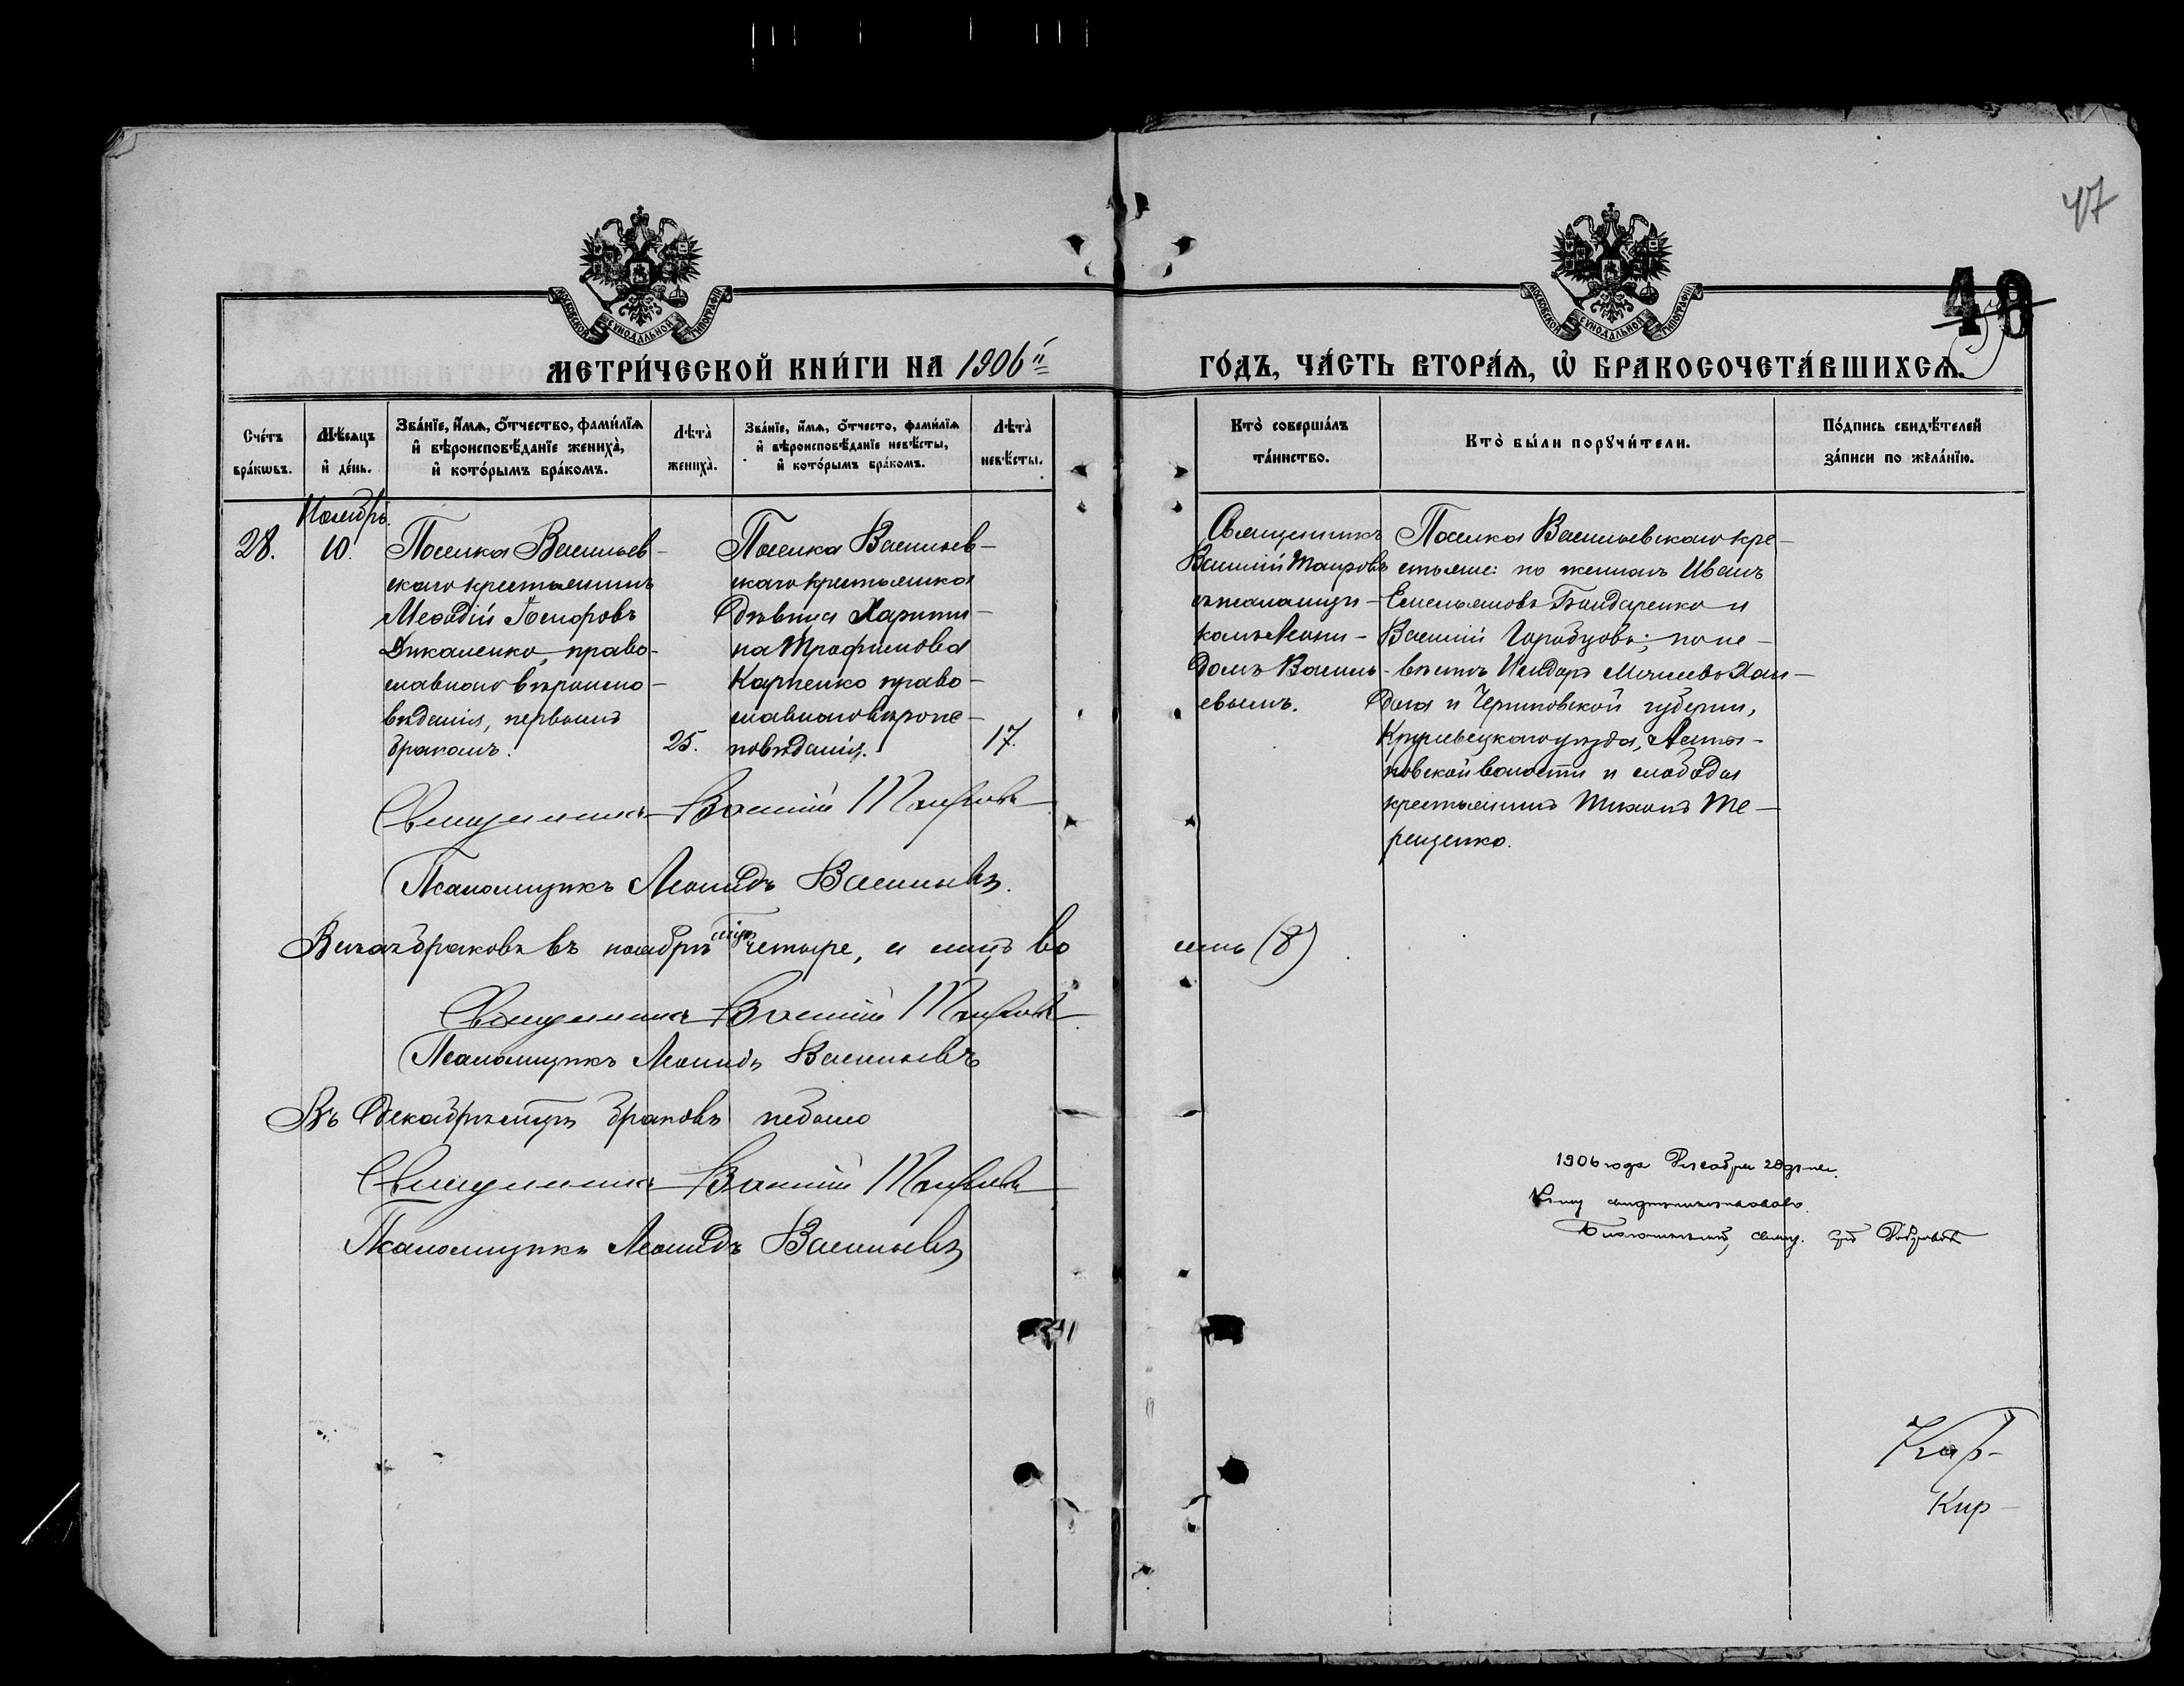 47
49
МОСКОВСКОЙ СѴНОДАЛЬНОЙ ТИПОГРАФІИ
МОСКОВСКОЙ СѴНОДАЛЬНОЙ ТИПОГРАФІИ
МЕТРИ́ЧЕСКОЙ КНИ́ГИ НА 1906
ГО́ДЪ, ЧА́СТЬ ВТОРА́Ѧ, Ѽ БРАКОСОЧЕТА́ВШИХСѦ.
Сче́тъ бра́кѡвъ.
Мѣ́сяцъ и҆ де́нь.
Зва́нїе, и҆́мѧ, ѻ҆́тчество, фами́лїѧ
и҆ вѣроисповѣ́данїе жениха̀,
и҆ кото́рымъ бра́комъ.
Лѣ́та̀ жениха̀.
Зва́нїе, и҆́мѧ, ѻ҆́тчесто, фами́лїѧ
и҆ вѣроисповѣ́данїе невѣ́сты,
и҆ кото́рымъ бра́комъ.
Лѣ́та̀ невѣ́сты.
Кто̀ соверша́лъ та́инство.
Кто̀ бы́ли порꙋчи́тели.
По́дпись свидѣ́телей за́писи по жела́нїю.
28.
Ноябрь
10.
Поселка Васильев-
скаго крестьянинъ
Меѳодій
Дикаленко, право-
славного вѣроиспо-
вѣданія, первымъ
бракомъ.
25.
Поселка Васильев-
скаго крестьянка
дѣвица Харити-
на Трофимова
Карпенко право-
славнаго вѣроис-
повѣданія.
17.
Священникъ
Василій Таировъ
съ псаломщи-
комъ Леони-
домъ Василь-
евымъ.
Поселка Васильевскаго кре-
стьяне: по женихѣ Иванъ
Емельяновъ Бондаренко и
Василій Горобцовъ; по не-
вѣстѣ
и Черниговской губерніи,
Кролевецкаго уѣзда,
волости и слободы
крестьянинъ Тихонъ Те-
рещенко.
Священникъ Василій Таировъ
Псаломщикъ Леонидъ Васильевъ.
Всѣхъ браковъ въ ноябрѣ мцѣ четыре, а лицъ во
семь (8)
Священникъ Василій Таировъ
Псаломщикъ Леонидъ Васильевъ
Въ Декабрѣ мцѣ браковъ не было
Священникъ Василій Таировъ
Псаломщикъ Леонидъ Васильевъ
1906 года Декабря 28 дня.
Благочинный, свящ.
Кир-